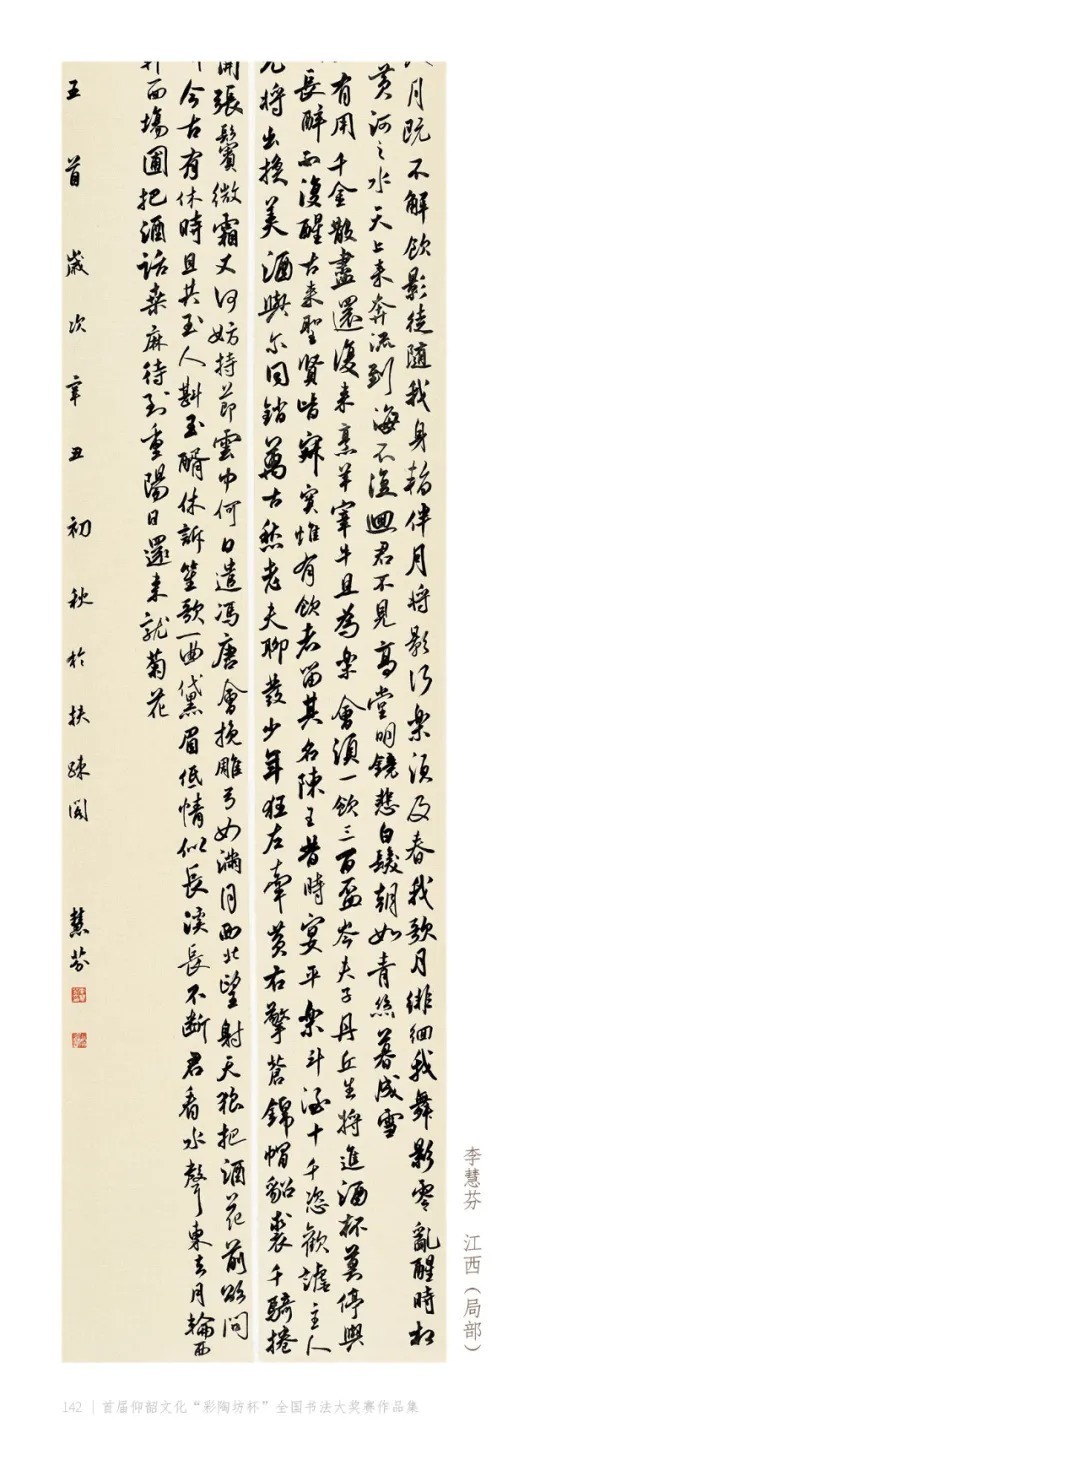 月既不解飲影徒隨我身暫伴月將影行樂須及春我歌月徘徊我舞影零亂醒時相
黃河之水天上來奔流到海不復迴君不見高堂明鏡悲白髮朝如青絲暮成雪
有用千金散盡還復來烹羊宰牛且為樂會須一飲三百盃岑夫子丹丘生將進酒杯莫停與
長醉不復醒古來聖賢皆寂寞惟有飲者留其名陳王昔時宴平樂斗酒十千恣歡謔主人
兒將出換美酒與爾同銷萬古愁老夫聊發少年狂左牽黃右擎蒼錦帽貂裘千騎捲
開張鬢微霜又何妨持節雲中何日遣馮唐會挽雕弓如滿月西北望射天狼把酒花前欲問
今古有休時且共玉人斟玉醑休訴笙歌一曲黛眉低情似長溪長不斷君看水聲東去月輪西
軒面場圃把酒話桑麻待到重陽日還來就菊花
五首 歲次辛丑初秋於扶疎閣 慧芬
李慧芬 江西（局部）
142 | 首届仰韶文化“彩陶坊杯”全国书法大奖赛作品集